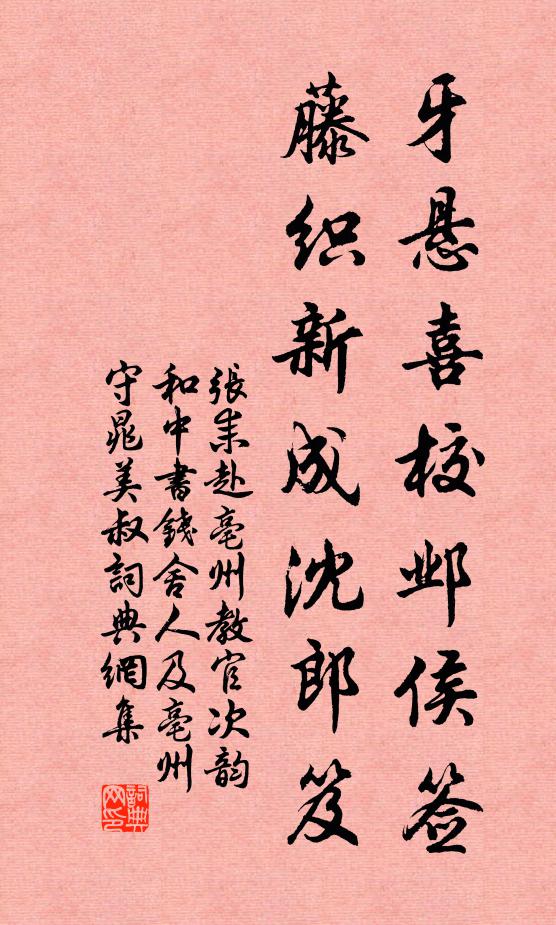 牙悬喜校邺侯签
藤织新成沈郎笈
張耒赴亳州教官次韵
和中書錢舍人及亳州
守晁美叔詞典網集
詞典网印